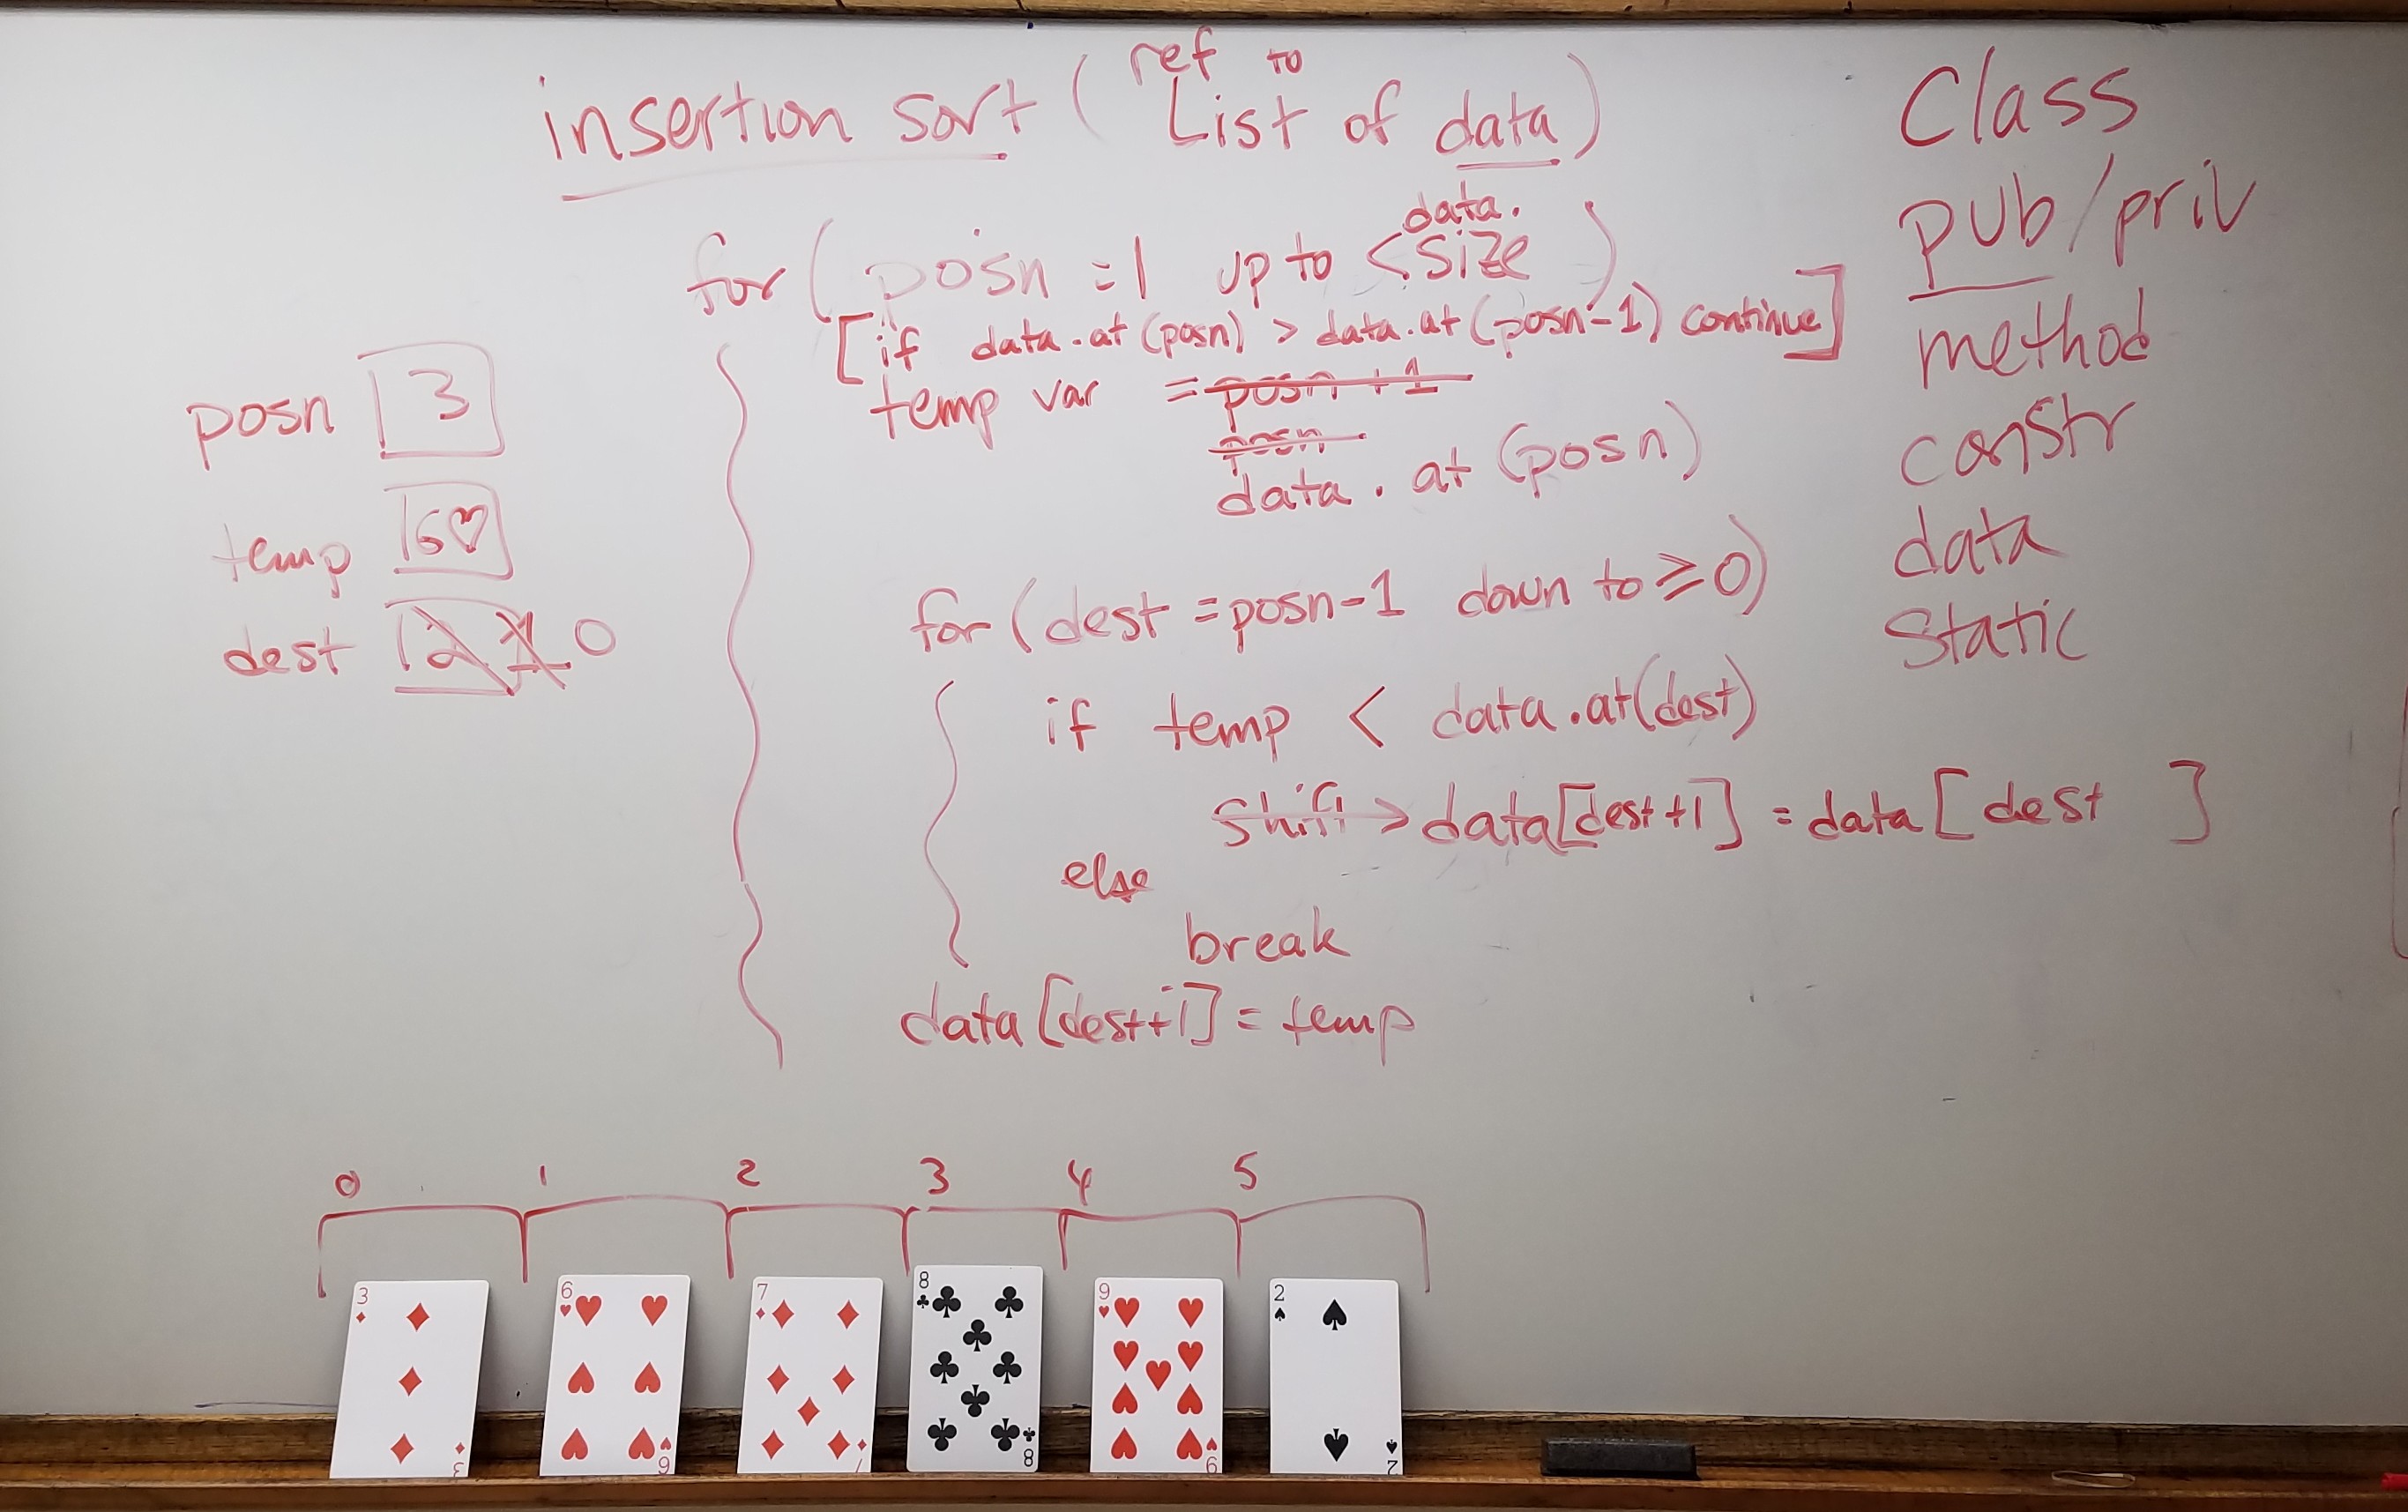 insertion sort ( ref to List of data )
for ( posn = 1 up to < data. size )
[ if data.at (posn) > data.at (posn-1) continue ]
temp var = posn + 1
posn
data . at (posn)
for ( dest = posn-1 down to ≥ 0 )
if temp < data.at(dest)
shift > data[dest+1] = data [ dest ]
else
break
data [dest+1] = temp
posn 3
temp 6♡
dest 2 1 0
Class
pub/priv
method
constr
data
Static
0 1 2 3 4 5
3 6 7 8 9 2
3 6 7 8 9 2